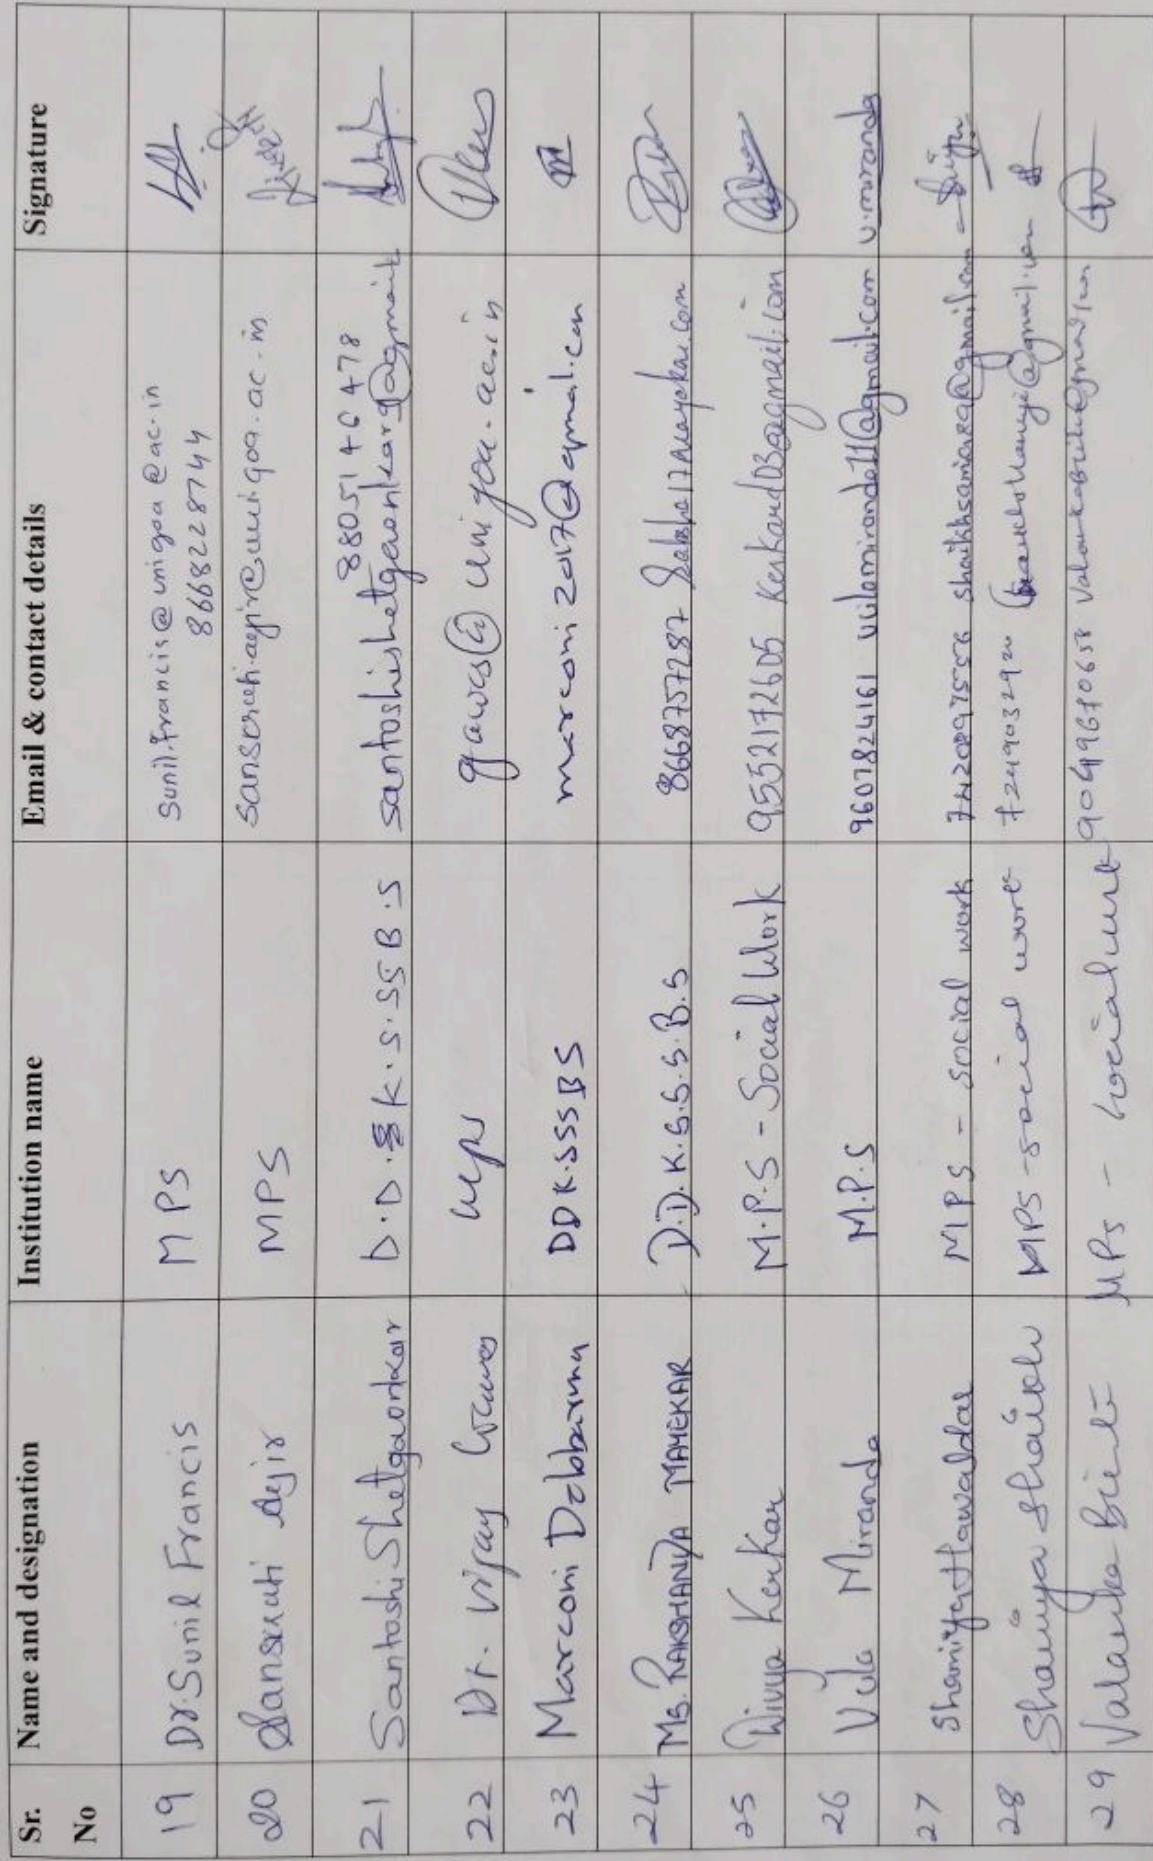 Sr. No Name and designation Institution name Email & contact details Signature
19 Dr. Sunil Francis MPS sunil.francis@unigoa@ac.in
8668228744
20 Sanscruti Aejir MPS sanscruti.aejir@unigoa.ac.in
21 Santoshi Shetgaonkar D.D.K.S.SSB.S 8805146478
santoshishetgaonkar9@gmail
22 Dr. Vijay Gawas gawas@unigoa.ac.in
23 Marconi Debbarma DDK.SSSBS marconi2017@gmail.com
24 Ms. RAKSHANDA MAYEKAR D.D.K.S.S.B.S 8668757287
25 Divya Kerkar M.P.S - Social Work 9552172605 Kerkard03@gmail.com
26 Viola Miranda M.P.S 9607824161 violamiranda11@gmail.com v.miranda
27 Shamiya Hawaldar MPS - Social work
28 Shaikh MPS - social work 7249032920
29 Valanka MPS - Social work